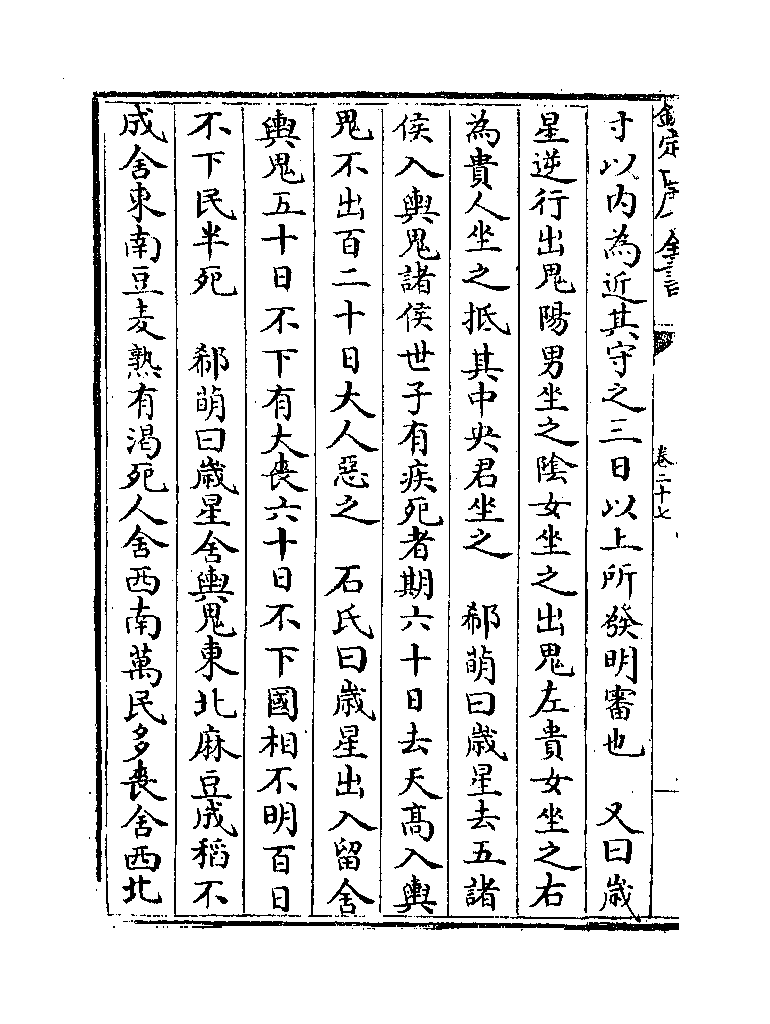 欽定四庫全書
卷二十七
寸以内為近其守之三日以上所發明審也　又曰歳
星逆行出鬼陽男坐之隂女坐之出鬼左貴女坐之右
為貴人坐之抵其中央君坐之　郗萌曰歳星去五諸
侯入輿鬼諸侯世子有疾死者期六十日去天髙入輿
鬼不出百二十日大人惡之　石氏曰歳星出入留舍
輿鬼五十日不下有大喪六十日不下國相不明百日
不下民半死　郗萌曰歳星舍輿鬼東北麻豆成稻不
成舍東南豆麦熟有渇死人舍西南萬民多喪舍西北